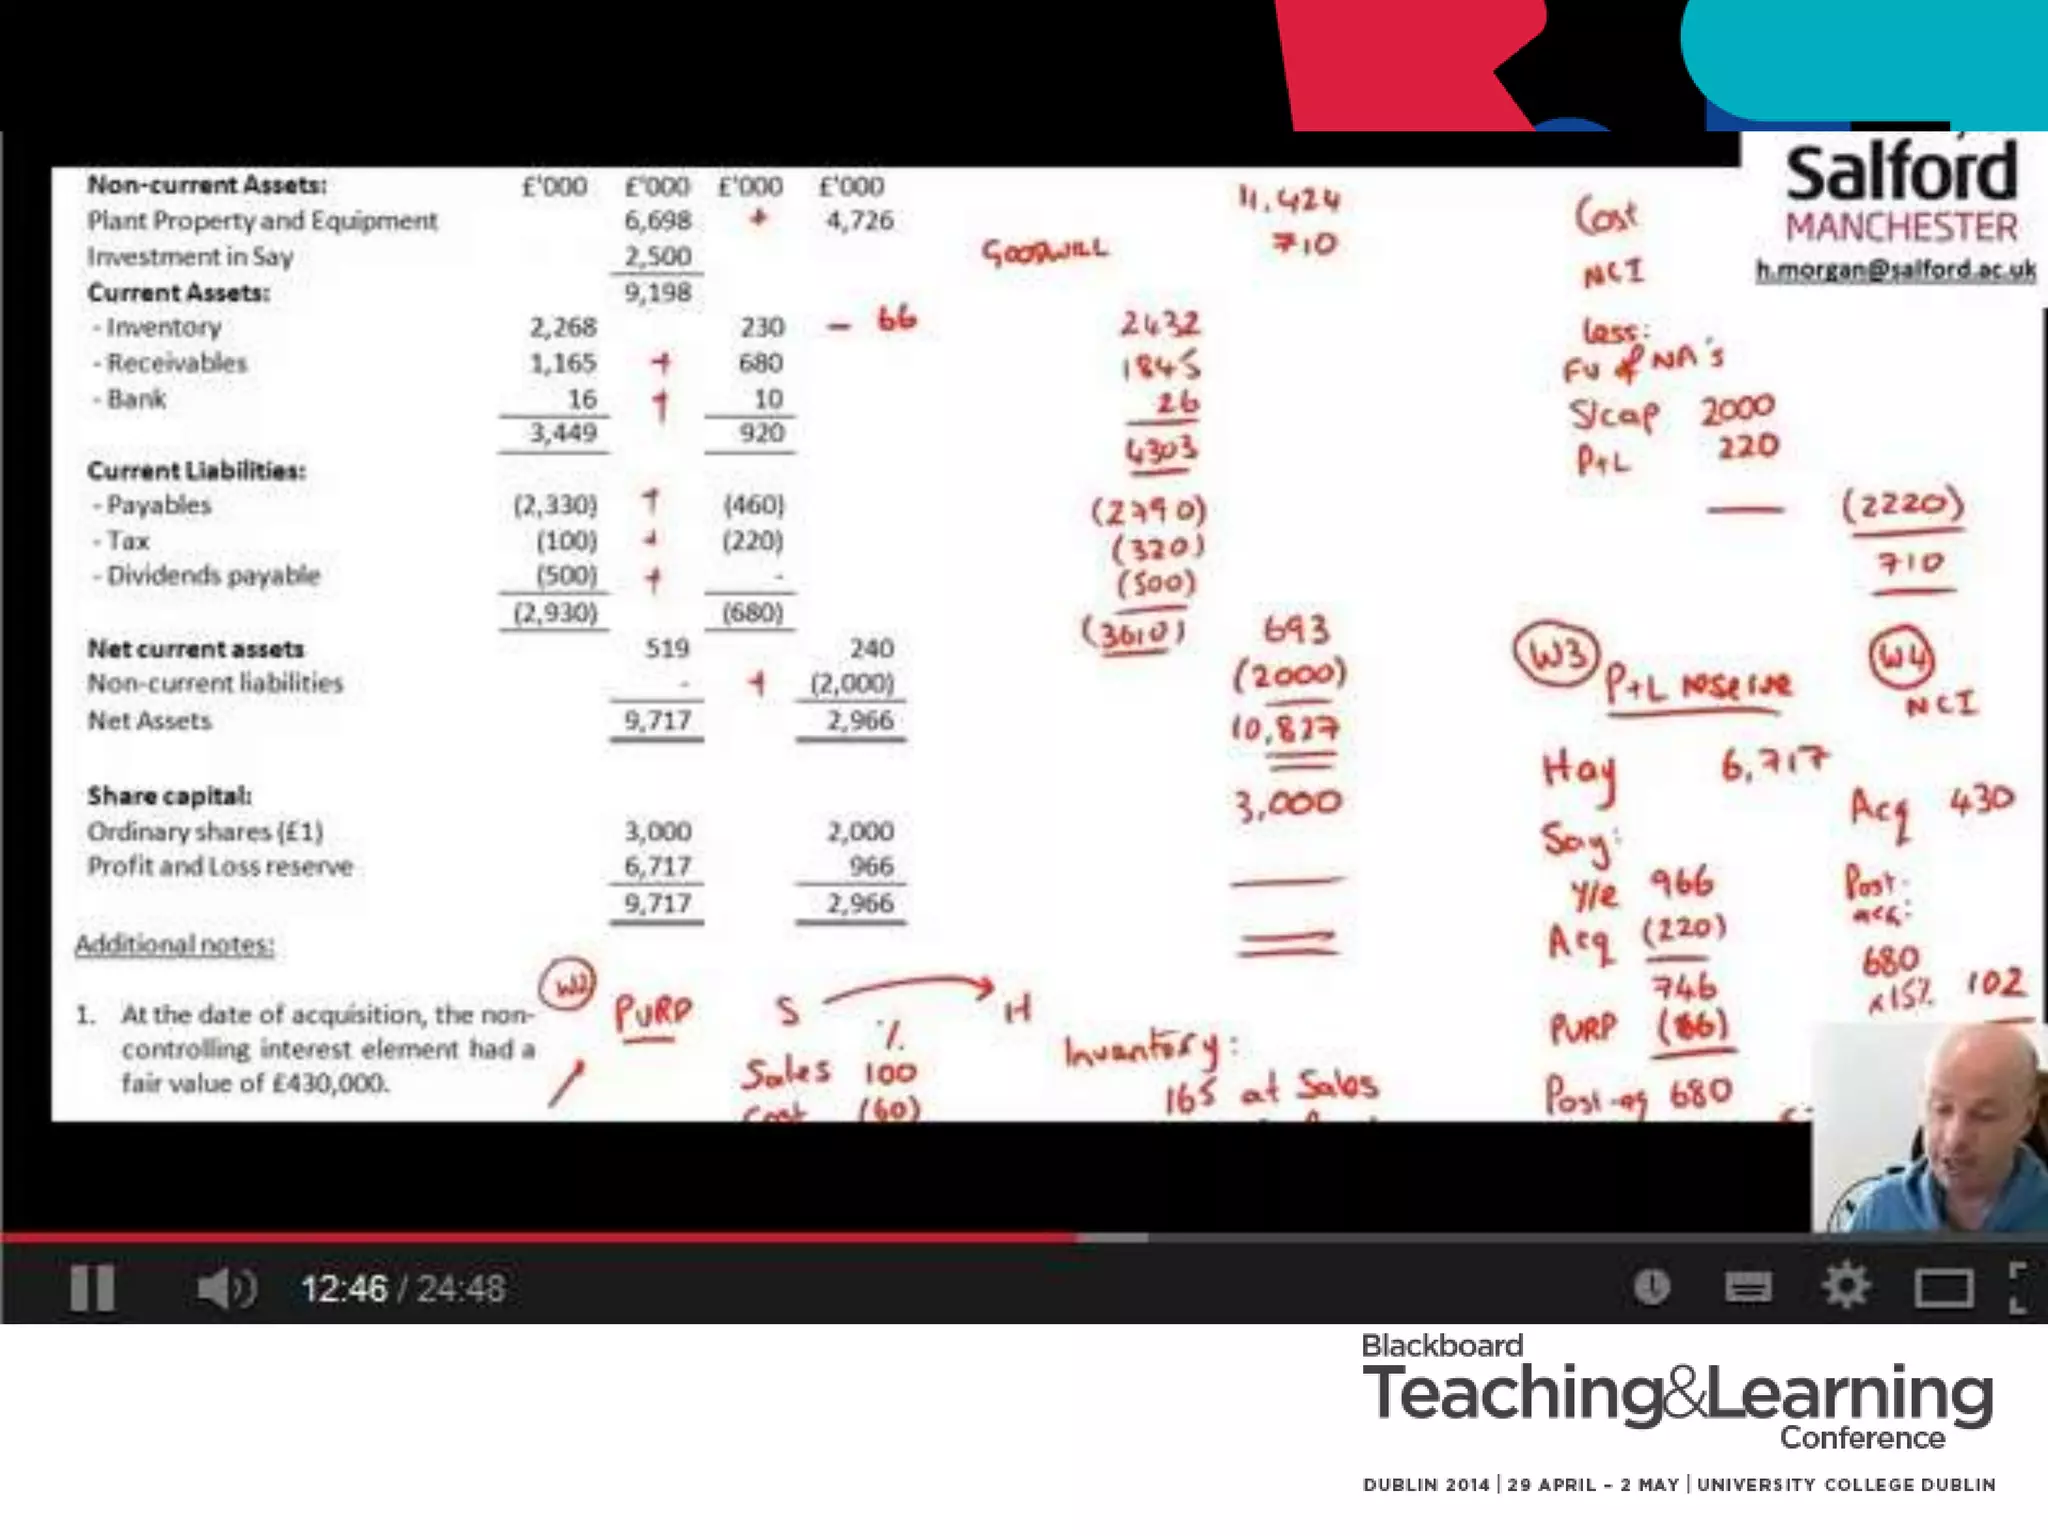 Salford
MANCHESTER
h.morgan@salford.ac.uk
Non-current Assets: £'000 £'000 £'000 £'000
Plant Property and Equipment 6,698 + 4,726 11,424
Investment in Say 2,500 GOODWILL 710
Current Assets: 9,198
- Inventory 2,268 230 - 66 2432
- Receivables 1,165 + 680 1845
- Bank 16 + 10 26
3,449 920 4303
Current Liabilities:
- Payables (2,330) + (460) (2790)
- Tax (100) + (220) (320)
- Dividends payable (500) + - (500)
(2,930) (680) (3610) 693
Net current assets 519 240
Non-current liabilities - + (2,000) (2000)
Net Assets 9,717 2,966 10,827
Share capital:
Ordinary shares (£1) 3,000 2,000 3,000
Profit and Loss reserve 6,717 966
9,717 2,966
Additional notes:
1. At the date of acquisition, the non-
controlling interest element had a
fair value of £430,000.
W2 PURP S H
%
Sales 100
Cost (60)
Inventory:
165 at Sales
Cost
NCI
less:
FV of NA's
S/cap 2000
P+L 220
(2220)
710
W3 P+L reserve
Hay 6,717
Say:
Y/e 966
Acq (220)
746
PURP (66)
Post-aq 680
W4
NCI
Acq 430
Post-
acq:
680
x15% 102
12:46 / 24:48
Blackboard
Teaching&Learning
Conference
DUBLIN 2014 | 29 APRIL – 2 MAY | UNIVERSITY COLLEGE DUBLIN